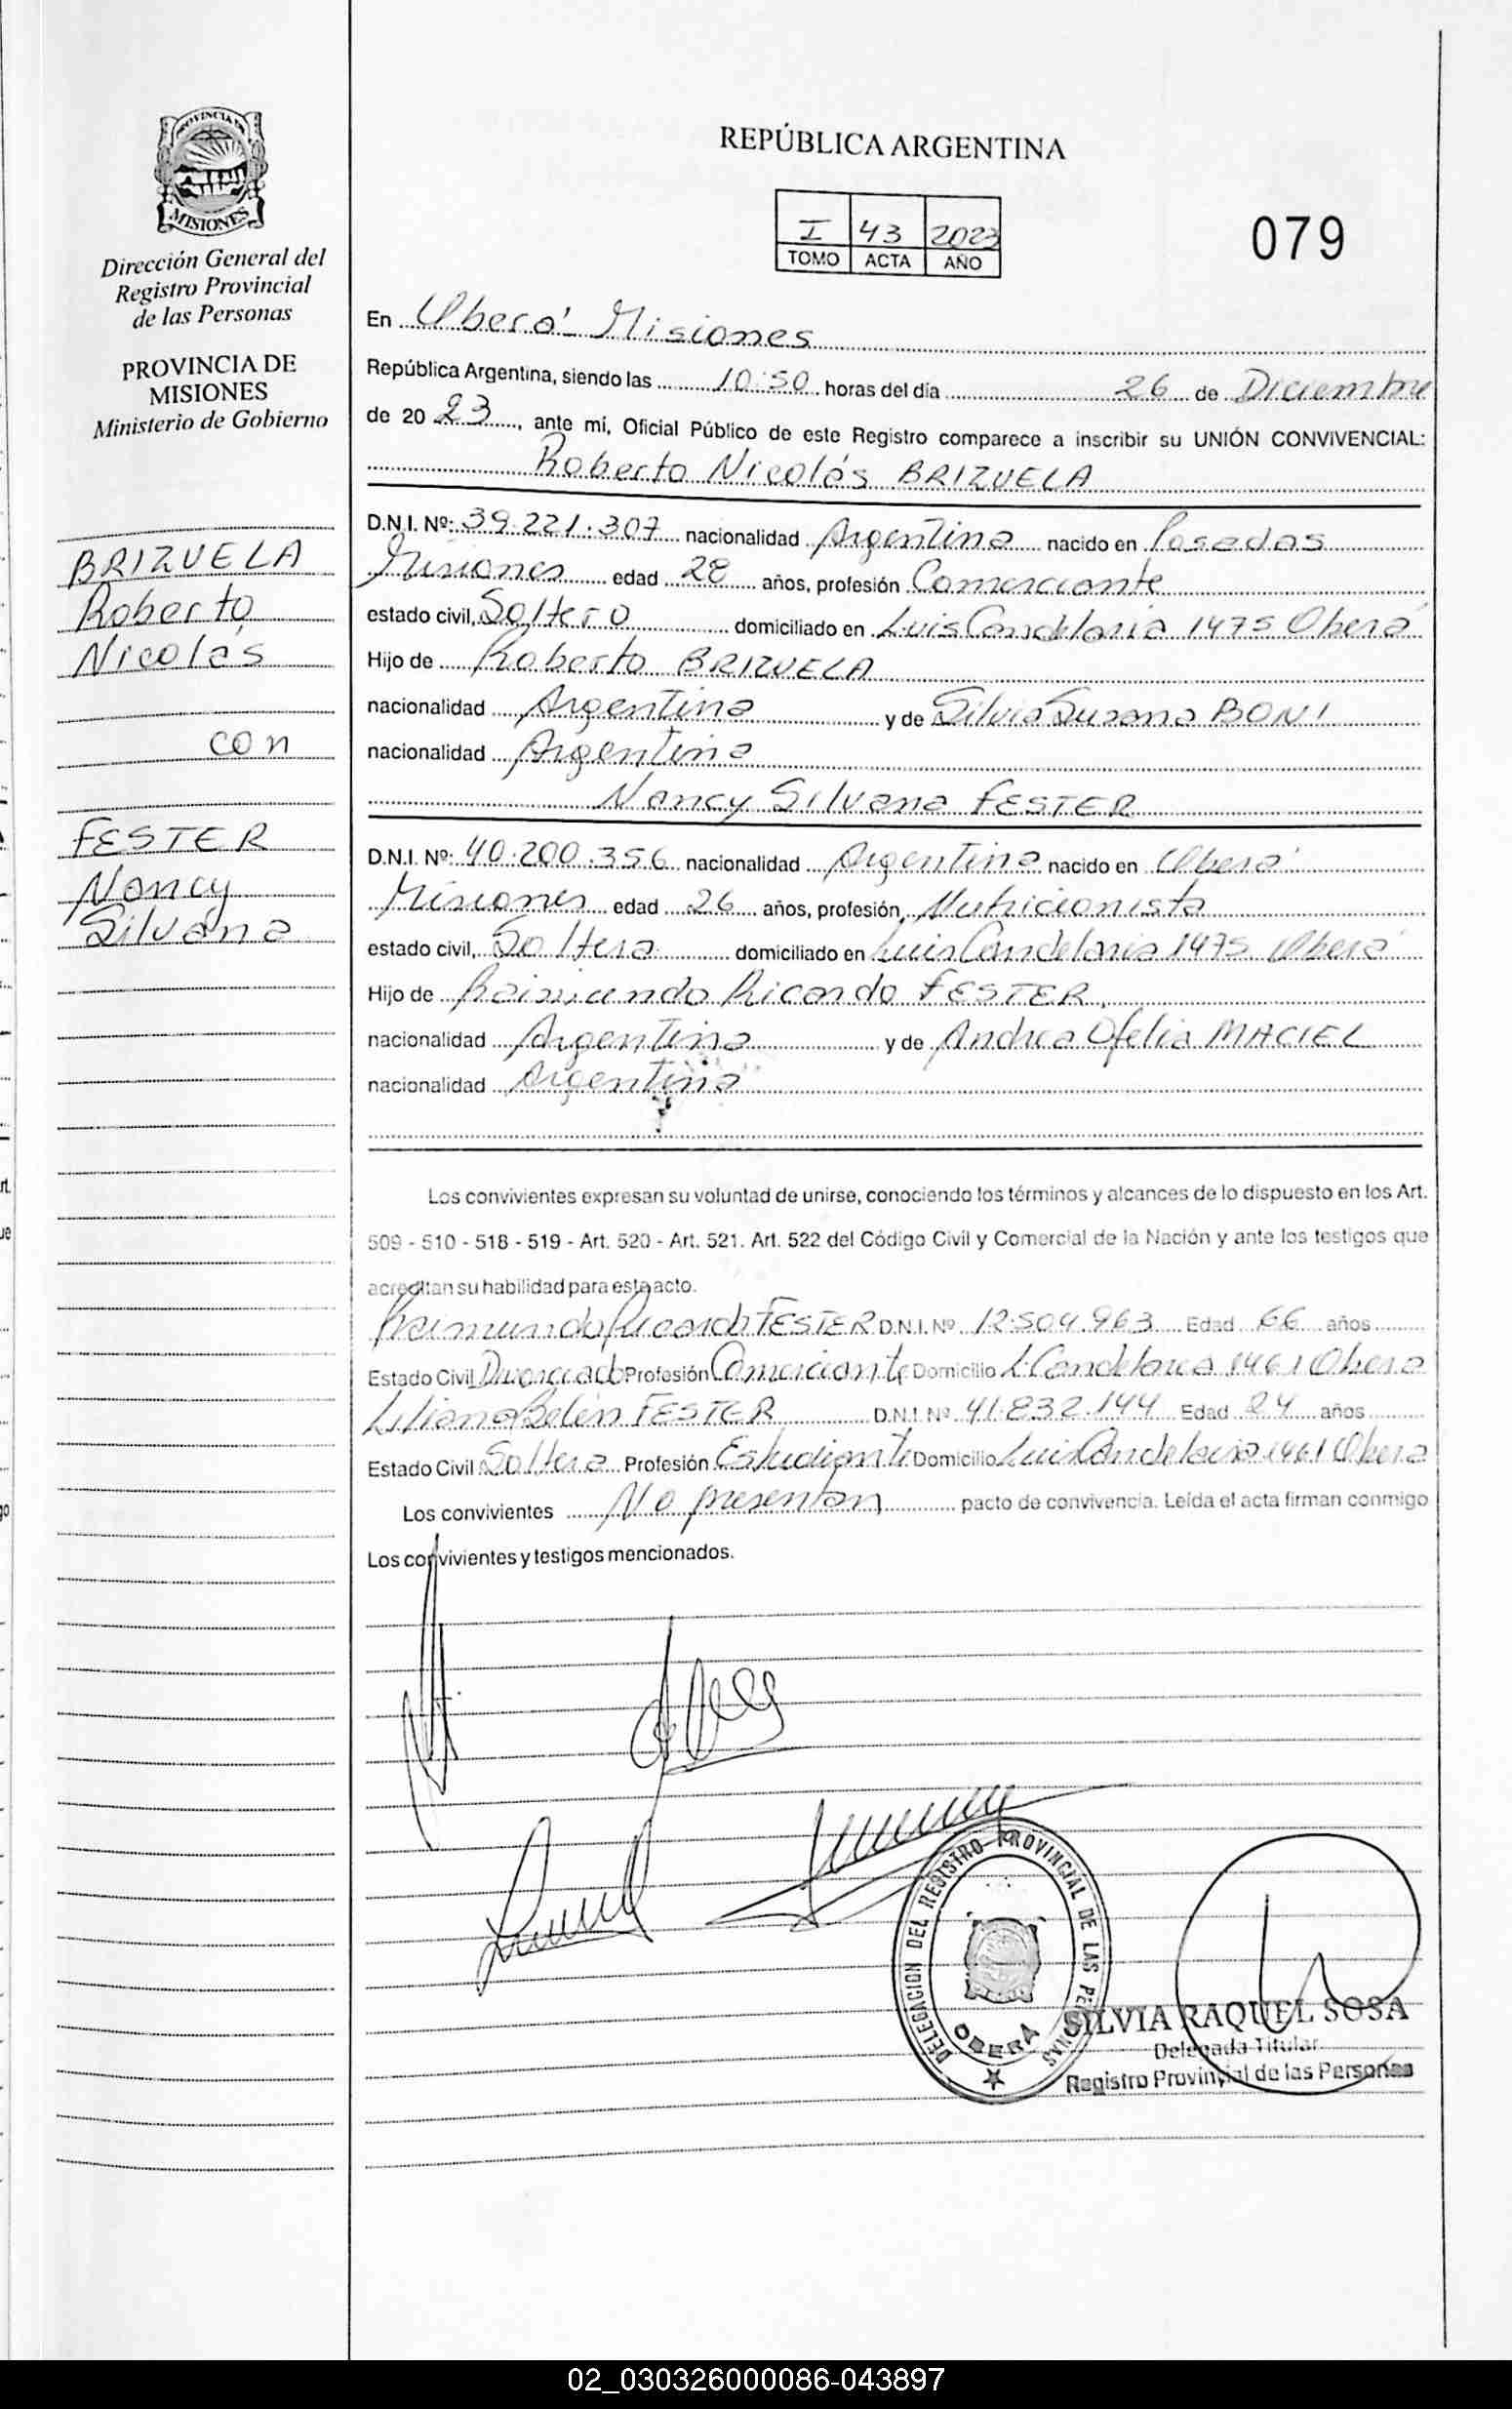 PROVINCIA DE
MISIONES
Dirección General del
Registro Provincial
de las Personas
PROVINCIA DE
MISIONES
Ministerio de Gobierno
BRIZUELA
Roberto
Nicolás
con
FESTER
Nancy
Silvana
REPÚBLICA ARGENTINA
I 43 2023
TOMO ACTA AÑO
079
En Oberá Misiones
República Argentina, siendo las 10:50 horas del día 26 de Diciembre
de 20 23, ante mí, Oficial Público de este Registro comparece a inscribir su UNIÓN CONVIVENCIAL:
Roberto Nicolás BRIZUELA
D.N.I. Nº: 39.221.307 nacionalidad Argentina nacido en Posadas
Misiones edad 28 años, profesión Comerciante
estado civil, Soltero domiciliado en Luis Candelaria 1475 Oberá
Hijo de Roberto BRIZUELA
nacionalidad Argentina y de Silvia Susana BONI
nacionalidad Argentina
Nancy Silvana FESTER
D.N.I. Nº: 40.200.356 nacionalidad Argentina nacido en Oberá
Misiones edad 26 años, profesión, Nutricionista
estado civil, Soltera domiciliado en Luis Candelaria 1475 Oberá
Hijo de Raimundo Ricardo FESTER
nacionalidad Argentina y de Andrea Ofelia MACIEL
nacionalidad Argentina
Los convivientes expresan su voluntad de unirse, conociendo los términos y alcances de lo dispuesto en los Art.
509 - 510 - 518 - 519 - Art. 520 - Art. 521. Art. 522 del Código Civil y Comercial de la Nación y ante los testigos que
acreditan su habilidad para este acto.
Raimundo Ricardo FESTER D.N.I. Nº 12.504.963 Edad 66 años
Estado Civil Divorciado Profesión Comerciante Domicilio L. Candelaria 1461 Oberá
Liliana Belén FESTER D.N.I. Nº 41.832.144 Edad 24 años
Estado Civil Soltera Profesión Estudiante Domicilio Luis Candelaria 1461 Oberá
Los convivientes No presentan pacto de convivencia. Leída el acta firman conmigo
Los convivientes y testigos mencionados.
DELEGACION DEL REGISTRO PROVINCIAL DE LAS PERSONAS
OBERÁ
SILVIA RAQUEL SOSA
Delegada Titular
Registro Provincial de las Personas
02_030326000086-043897